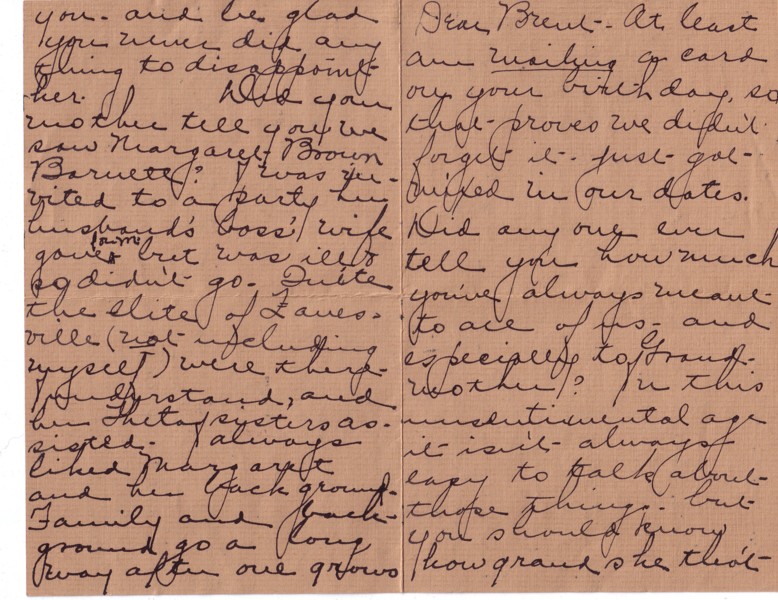 Dear Brent- At least
am mailing a card
on your birthday, so
that proves we didn't
forget it- just got
mixed in our dates.
Did any one ever
tell you how much
you've always meant
to all of us- and
especially to Grand-
mother? In this
unsentimental age
it isn't always
easy to talk about
those things- but
you should know
how grand she tho't
you- and be glad
you never did any
thing to disappoint
her. Did your
mother tell you we
saw Margaret Brown
Barnett? I was in-
vited to a party her
husband's boss' wife
for M.
gave but was ill &
so didn't go. Quite
the elite of Zanes-
ville (not including
myself) were there-
I understand, and
her Theta sisters as-
sisted- I always
liked Margaret
and her background-
Family and back-
ground go a long
way after one grows